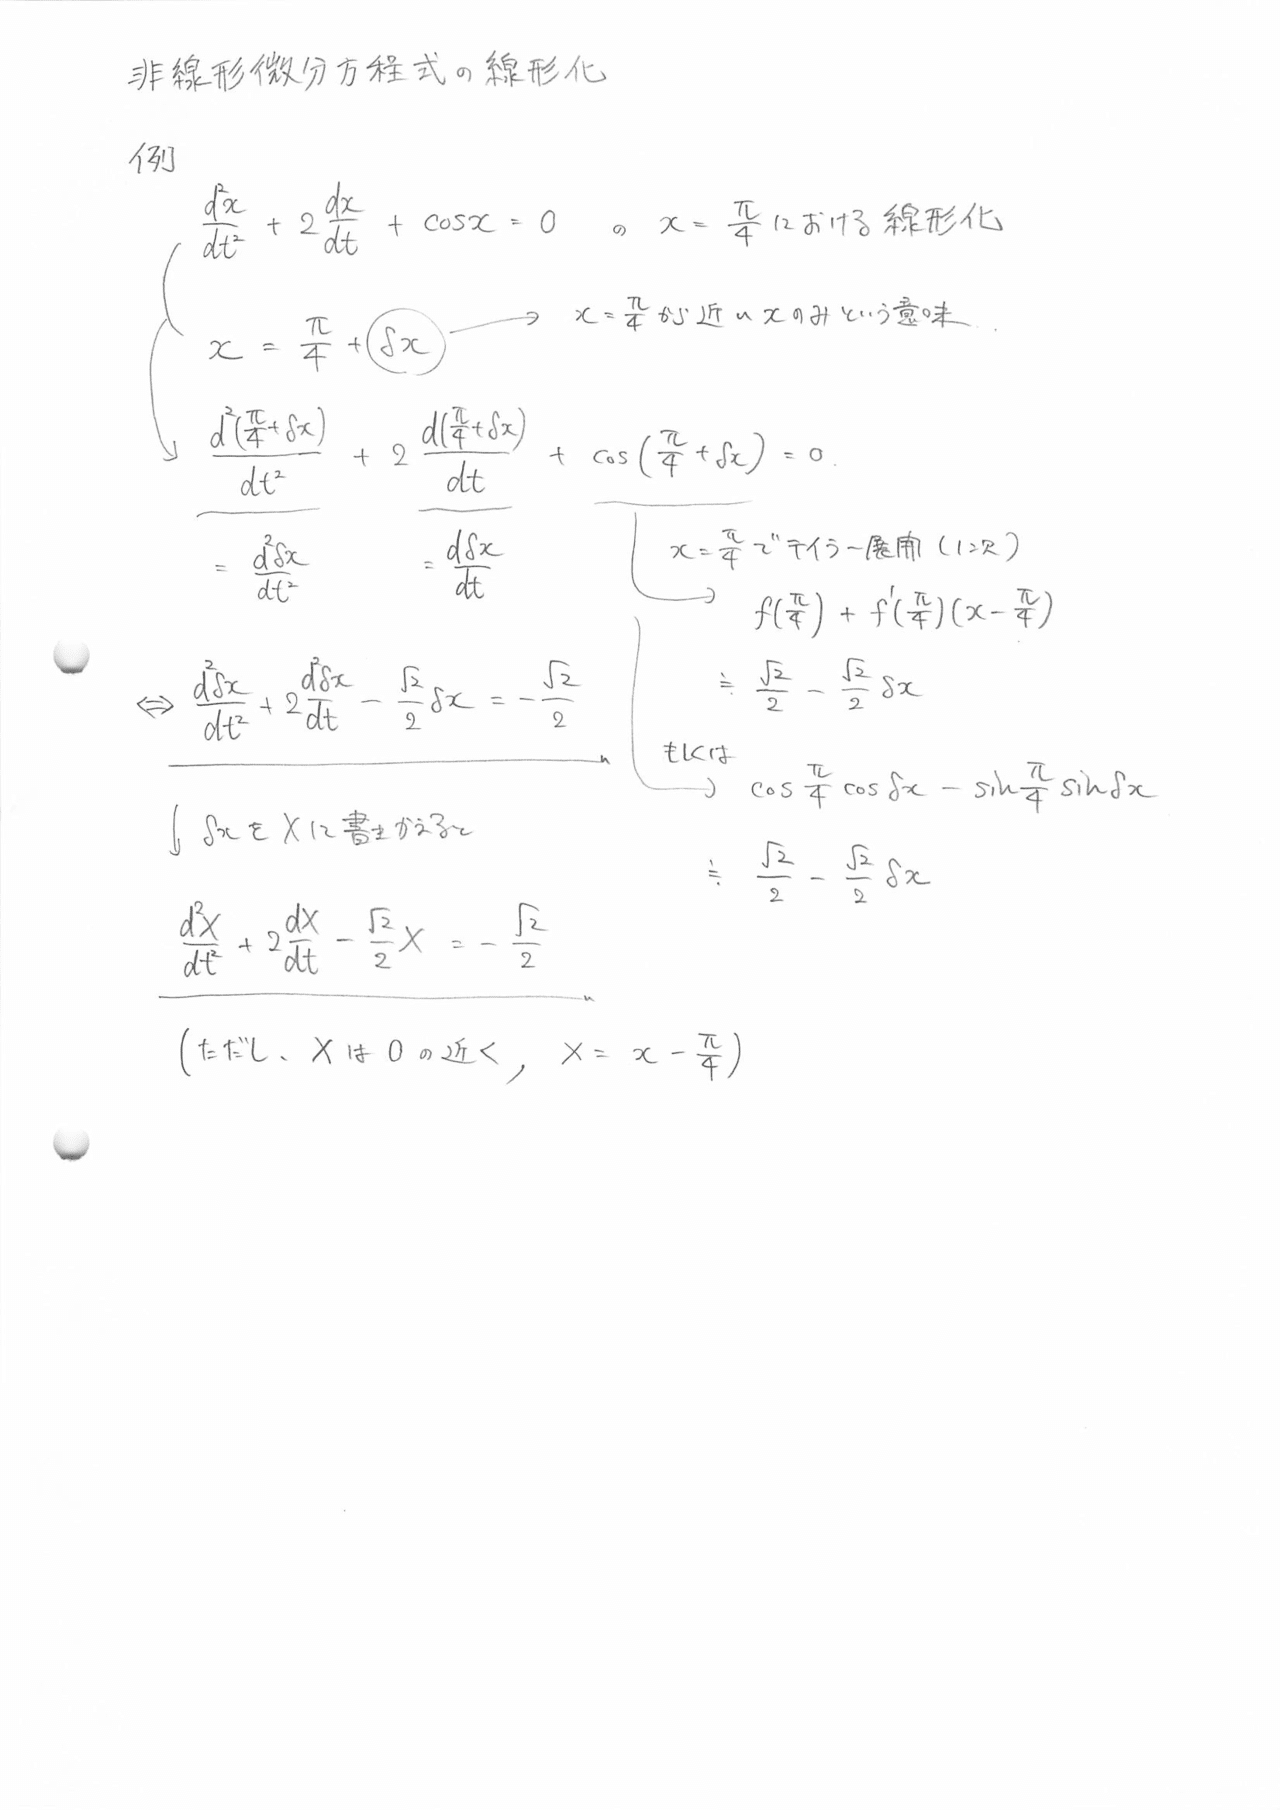 非線形微分方程式の線形化
例
d²x/dt² + 2 dx/dt + cosx = 0 の x = π/4 における線形化
x = π/4 + δx → x = π/4 から近いxのみという意味
d²(π/4+δx)/dt² + 2 d(π/4+δx)/dt + cos(π/4+δx) = 0.
= d²δx/dt² = dδx/dt
x = π/4 でテイラー展開 (1次)
→ f(π/4) + f'(π/4)(x-π/4)
≒ √2/2 - √2/2 δx
⇔ d²δx/dt² + 2 d²δx/dt - √2/2 δx = - √2/2
もしくは
→ cos π/4 cos δx - sin π/4 sin δx
≒ √2/2 - √2/2 δx
↓ δxをXに書きかえると
d²X/dt² + 2 dX/dt - √2/2 X = - √2/2
(ただし、Xは0の近く, X = x - π/4)